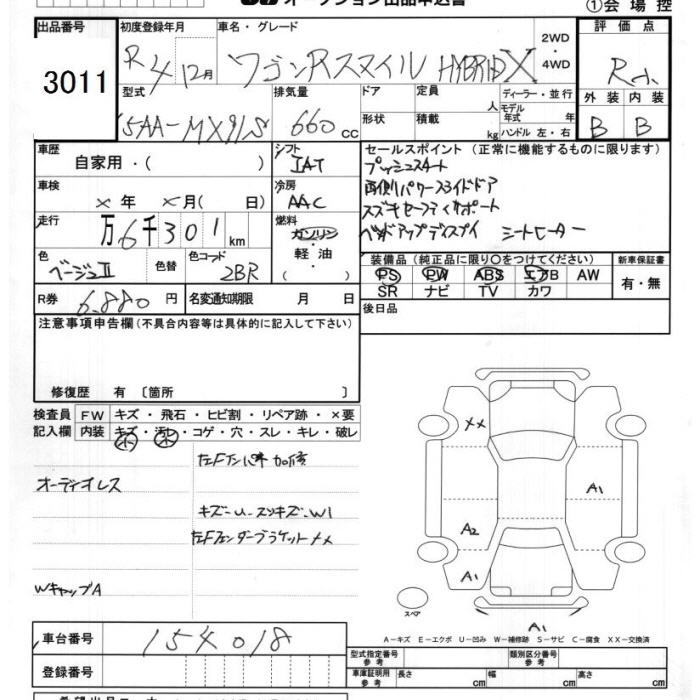 オークション出品申込書
①会場控
出品番号 初度登録年月 車名・グレード 評価点
3011 R4 12月 ワゴンRスマイル HYBRID X 2WD・4WD R小
型式 排気量 ドア 定員 人 ディーラー・並行 外装 内装
5AA-MX91S 660cc 形状 積載 kg モデル年式 年 ハンドル 左・右 B B
車歴 自家用・( ) シフト IAT
セールスポイント(正常に機能するものに限ります)
プッシュスタート
車検 × 年 × 月( 日) 冷房 AAC
両側パワースライドドア
スズキセーフティサポート
走行 万6千301km 燃料 ガソリン・軽油・( )
ヘッドアップディスプレイ シートヒーター
色 ベージュII 色替 色コード 2BR
装備品(純正品に限り○をつけてください) 新車保証書
PS PW ABS エアB AW 有・無
SR ナビ TV カワ
R券 6,880円 名変通知期限 月 日
後日品
注意事項申告欄(不具合内容等は具体的に記入して下さい)
修復歴 有 〔箇所 〕
検査員記入欄 FW キズ・飛石・ヒビ割・リペア跡・×要
内装 キズ・汚レ・コゲ・穴・スレ・キレ・破レ
小 小
オーディオレス
キズ-U-スリキズ-W1
左Fフェンダーブラケット××
WキャップA
××
A1
A2
A1
A1
スペア
A-キズ E-エクボ U-凹み W-補修跡 S-サビ C-腐食 XX-交換済
車台番号 154018
登録番号
型式指定番号 参考 類別区分番号 参考
車庫証明用 参考 長さ cm 幅 cm 高さ cm